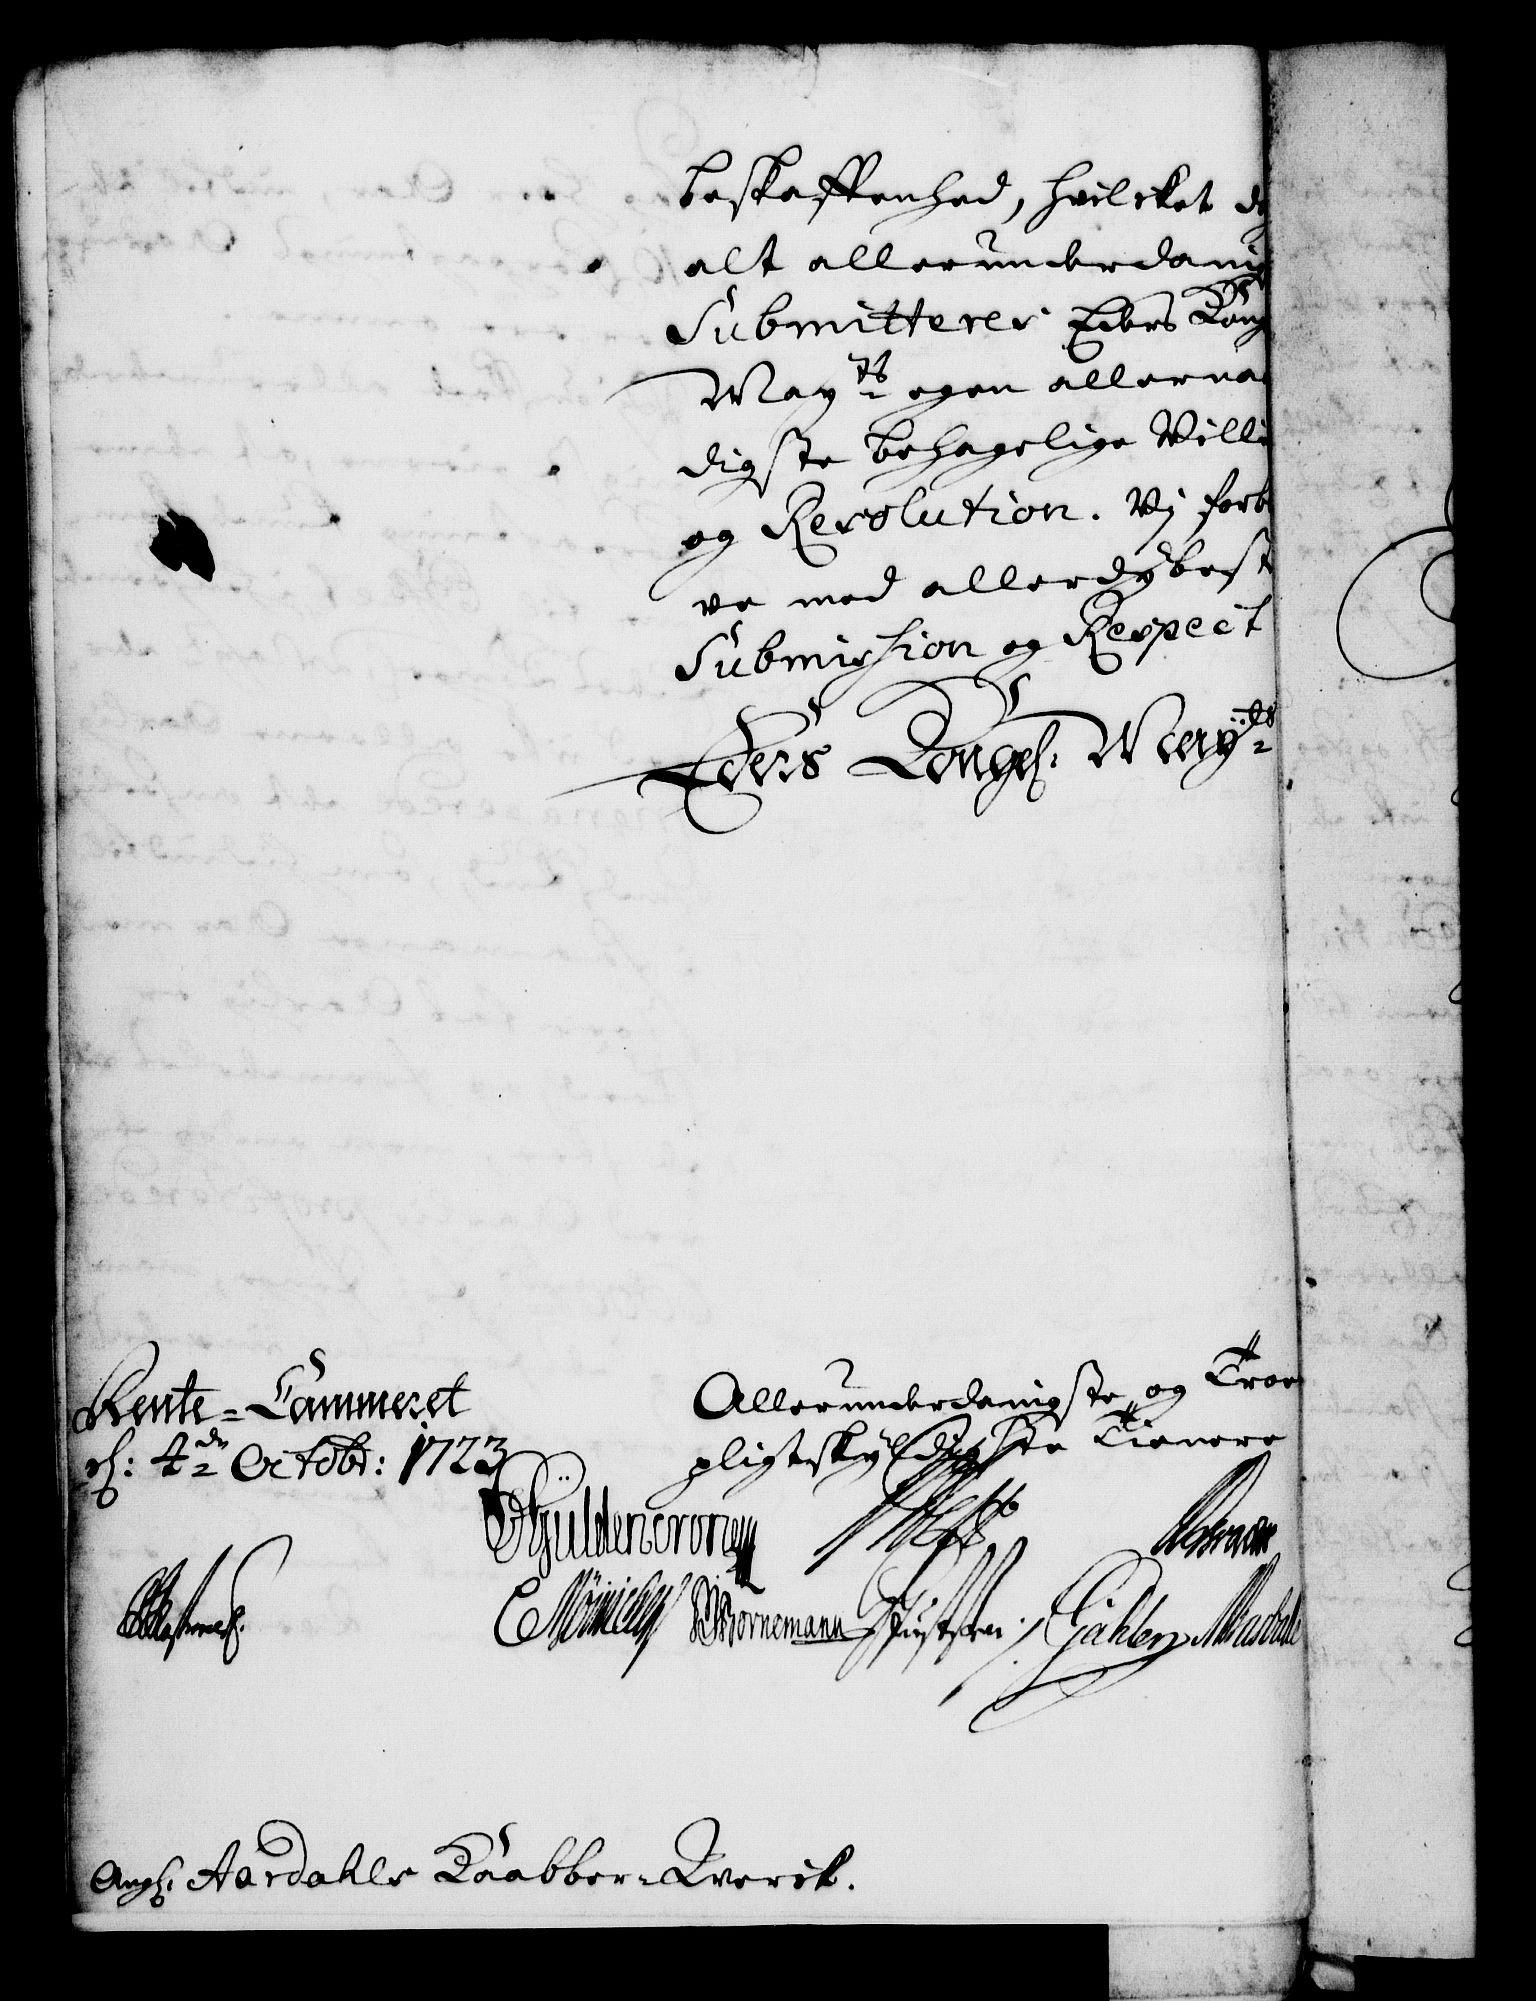 beskaffenhed, hvilcket de
alt allerunderdanig
Submitterer Eders Kong
May.ts egen allernaa
digste behagelige Villi
og Resolution. Vi forbl
ve med allerdybeste
Submission og Respect
Eders Kongel. Mayts
Rente-Cammeret
d: 4de Octobr: 1723
Allerunderdanigste og Troe
pligtskyldigste Tienere
Güldencrone
C Mönichen Bornemann
Aug: Aardahls Kaabber-Qverck.